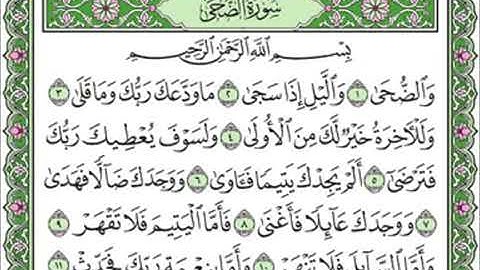 سُورَةُ الضُّحَى
بِسْمِ اللَّهِ الرَّحْمَٰنِ الرَّحِيمِ
وَالضُّحَىٰ ١ وَاللَّيْلِ إِذَا سَجَىٰ ٢ مَا وَدَّعَكَ رَبُّكَ وَمَا قَلَىٰ ٣
وَلَلْآخِرَةُ خَيْرٌ لَّكَ مِنَ الْأُولَىٰ ٤ وَلَسَوْفَ يُعْطِيكَ رَبُّكَ
فَتَرْضَىٰ ٥ أَلَمْ يَجِدْكَ يَتِيمًا فَآوَىٰ ٦ وَوَجَدَكَ ضَالًّا فَهَدَىٰ
٧ وَوَجَدَكَ عَائِلًا فَأَغْنَىٰ ٨ فَأَمَّا الْيَتِيمَ فَلَا تَقْهَرْ ٩
وَأَمَّا السَّائِلَ فَلَا تَنْهَرْ ١٠ وَأَمَّا بِنِعْمَةِ رَبِّكَ فَحَدِّثْ ١١